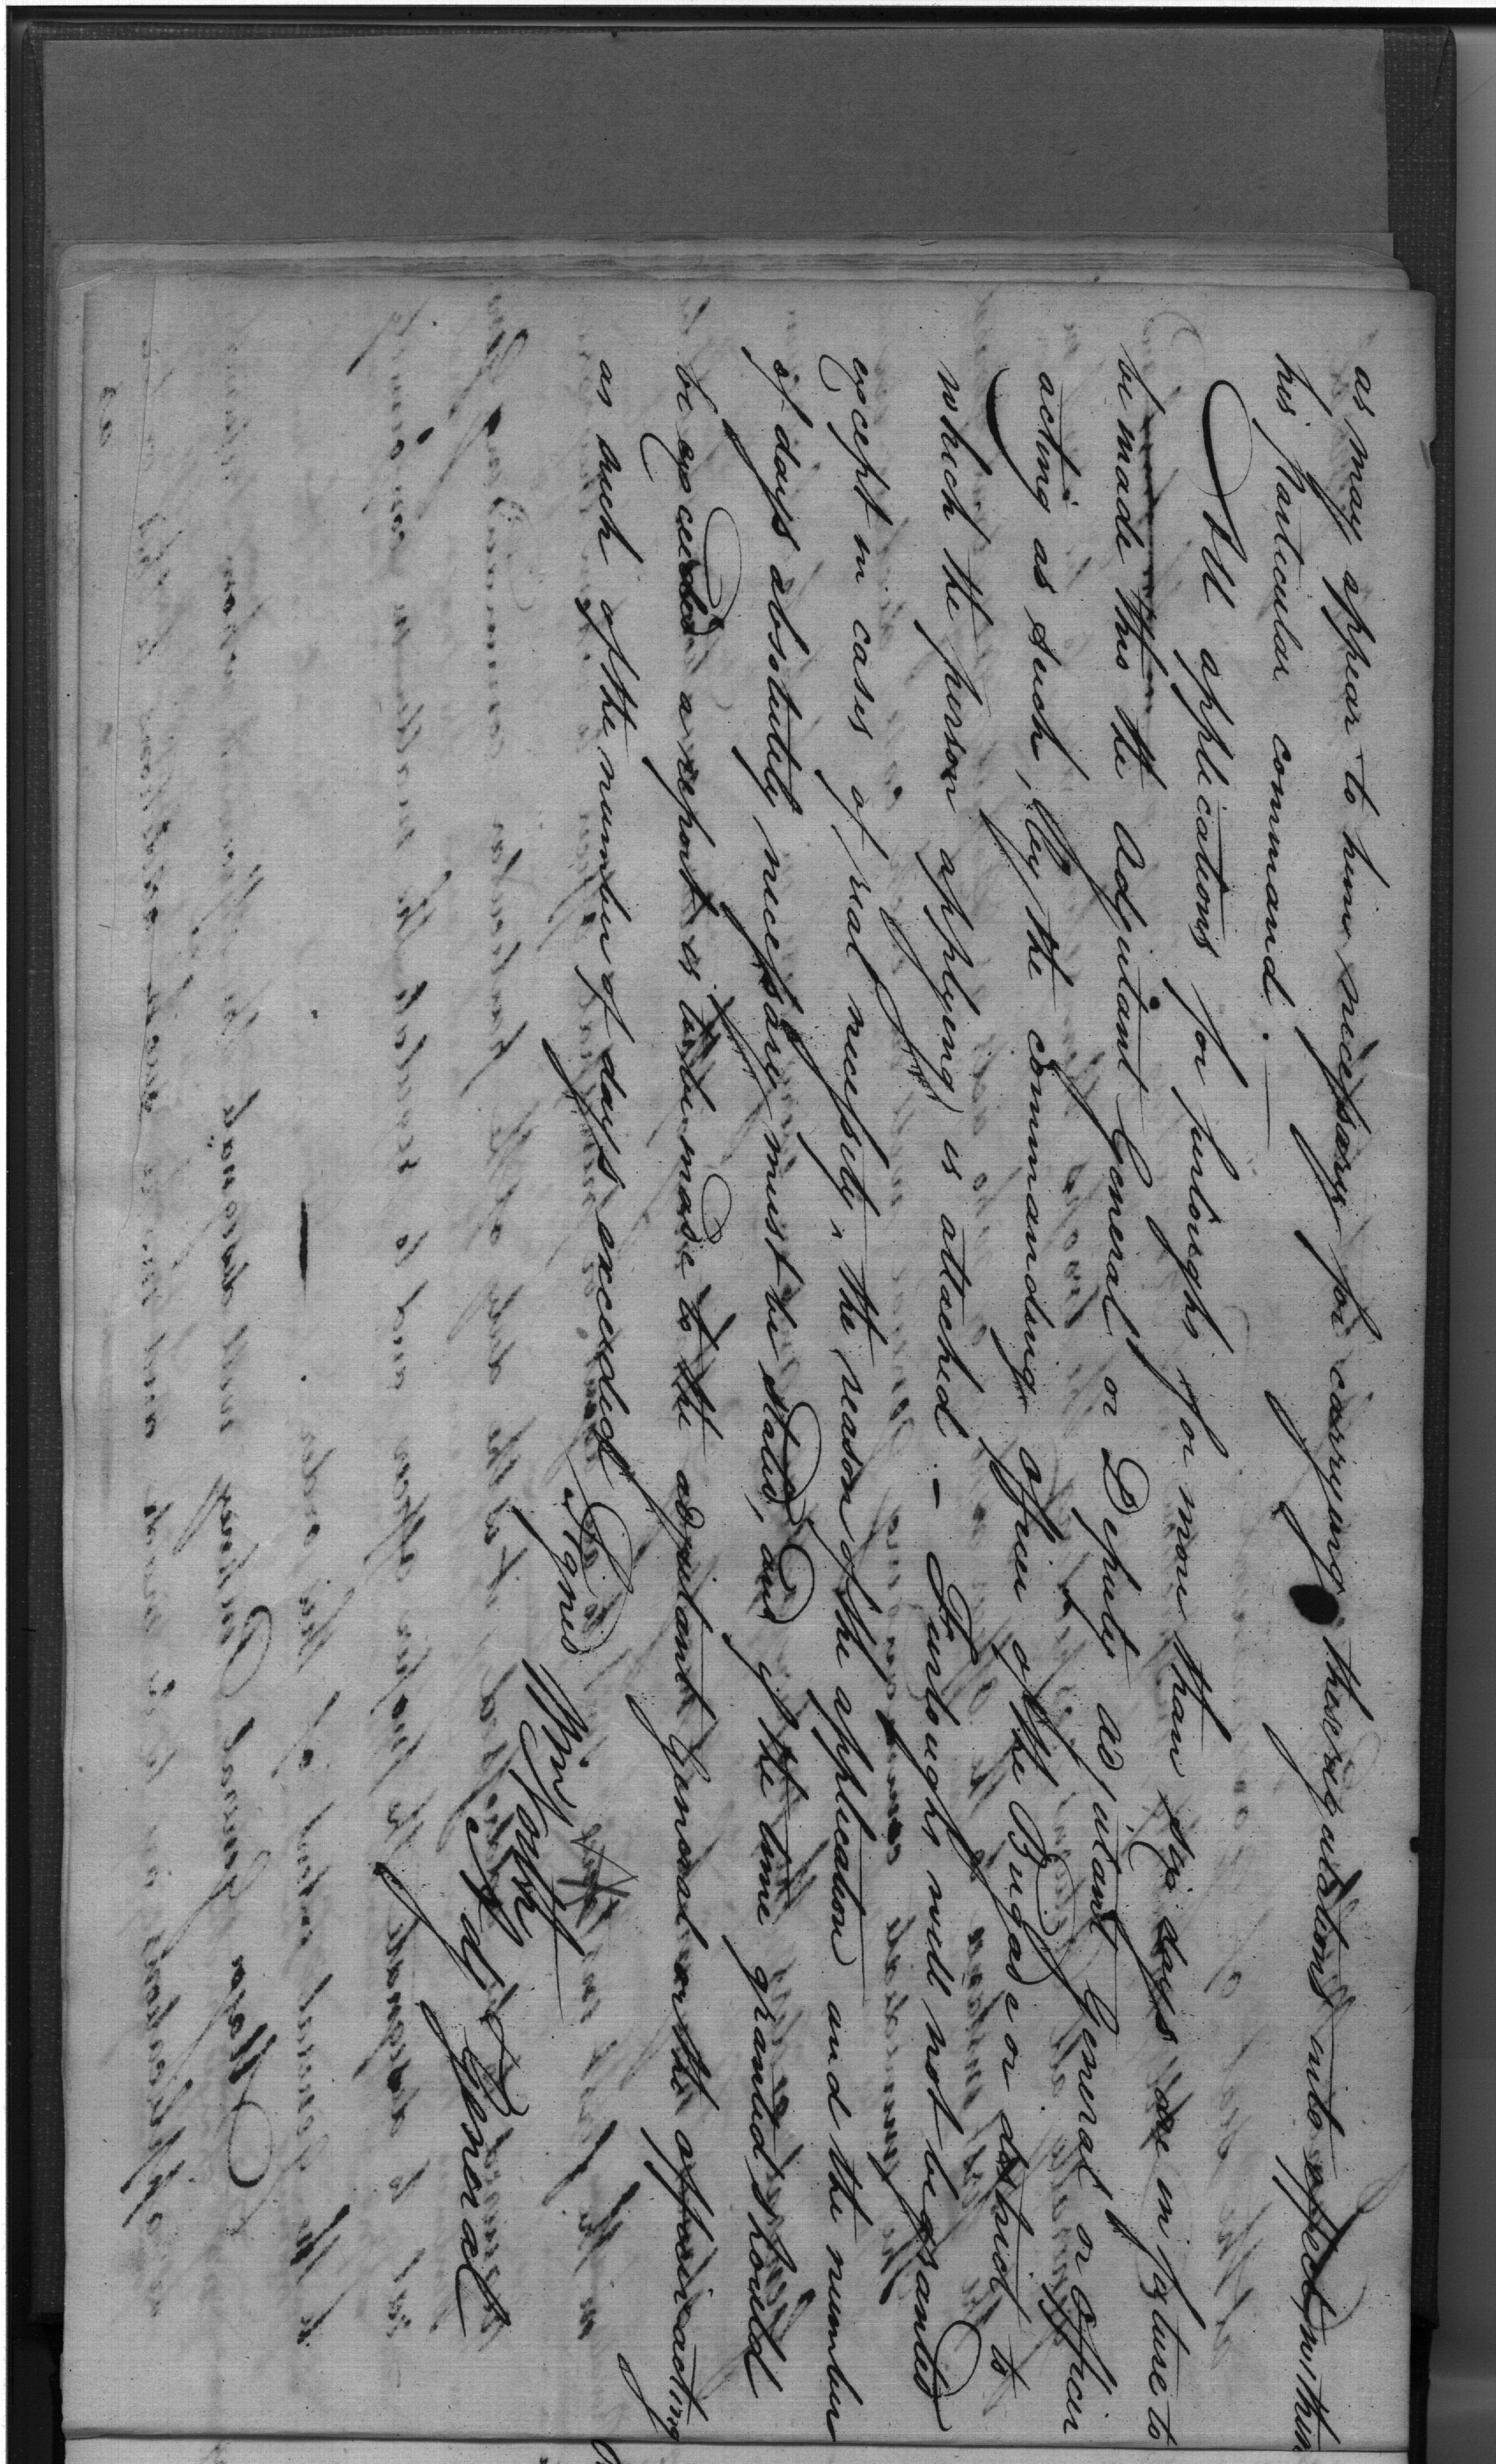 as may appear to him necessary for carrying these regulations into effect within
his particular command.
All applications for furloughs for more than six days are in future to
be made thro the Adjutant General or Deputy adjutant General or Officer
acting as such, by the commanding officer of the Brigade or district to
which the person applying is attached. - Furloughs will not be granted
except in cases of real necessity, the reason of the application and the number
of days absolutely necessary must be stated, and if the time granted should
be exceeded a report is to be made to the adjutant General or the officer acting
as such of the number of days exceeded
Signed Wm North
Adjt General